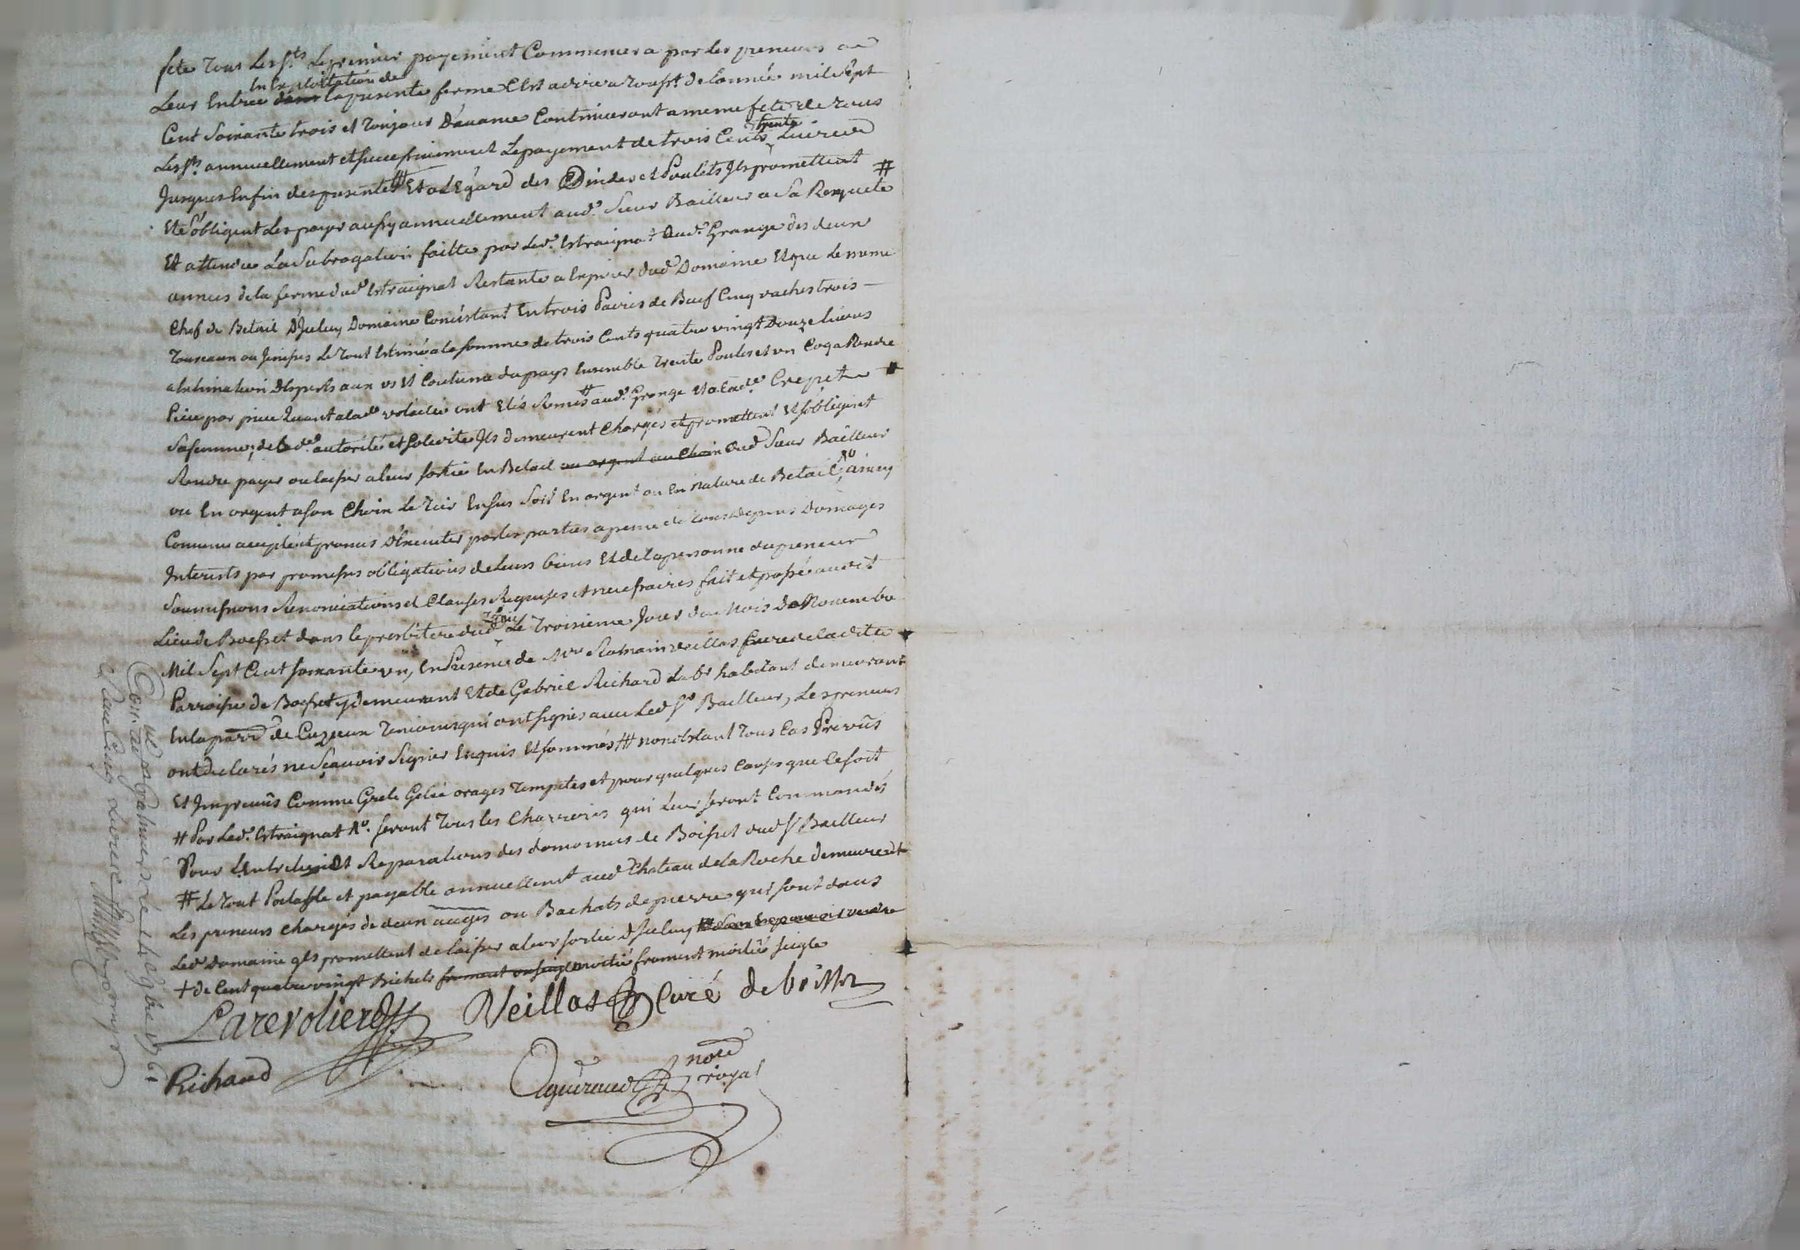 fete tous les Sts le premier payement Commencera par les preneurs a
Leur Entrée En Exploitation de la presente ferme C'Est a dire a tousst de l'année mil sept
Cent Soixante trois et toujour D'avance Continueront a meme fete de tous
Les Sts annuellement et successivement Le payement de trois Cents trente Livres
Jusques Enfin des presentes # Et a L'Egard des Dindes et Poulets Ils promettent
Et s'obligent Les payer aussy annuellement aud. Sieur Bailleur a Sa Requete #
Et attendu La Subrogation faitte par Led. Estraignat Aud. Grange des deux
années de la ferme dud Estraignat Restante a Expirer dud Domaine Et que Le meme
Chef de Betail D'Iceluy Domaine Consistant En trois Paires de Boeuf Cinq vaches trois
Toureaux ou Jenisses Le tout Estimé a la somme de trois Cents quatre vingt Douze livres
a Estimation D'Experts aux us Et Coutume du pays Ensemble trente Poules et un Coq a Rendre
Piece par piece Quant a lad. volaille ont Etés Remis # aud. Grange Et a Lad. Crepet #
Sa femme, de lad. autorité et Solidité Ils demeurent Chargés et promettent Et s'obligent
Rendre payer ou laisser a leur sortie En Betail ou argent au Choix Aud Sieur Bailleur
ou En argent a son Choix Le Tier Ensus Soit En argent ou En nature de Betail, ainsy
Convenu accepté et promis D'Executer par les parties a peine de tous Depens Domages
Interests par promesses obligations de Leurs biens Et de la personne du preneur
Soumissions Renonciations et Clauses Requises et necessaires fait et passé audit
Lieu de Boesset dans le presbitere dud Lieu Le Troisieme Jour du Mois de Novembre
Mil Sept Cent soixante un, En Presence de Mre Romain veillas Curé de ladite
Parroisse de Boesset y demeurant Et de Gabriel Richard Labr habitant demeurant
En la parr. de Cuzieux Temoins qui ont signés avec Led Sr Bailleur, Les preneurs
ont declarés ne sçavoir Signer Enquis Et sommés # nonobstant tous Cas Prevûs
Et Imprevûs Comme Grele Gelée orages Tempetes et pour quelques Causes que Ce soit
# Par Led. Estraignat # feront tous les Charrois qui Leur seront Commandés
Pour L'Entretien Et Reparations des domaines de Boisset dud Sr Bailleur
# Le tout Portable et payable annuellement aud Chateau de la Roche demeurent
Les preneurs Chargés de deux auges ou Bachats de pierre qui sont dans
Led. Domaine qls promettent de laisser a leur sortie d'Iceluy
+ de Cent quatre vingt Bichets froment ou seigle moitié froment moitié seigle
Larevoliere Veillas Curé de boisset
Richard Aguiraud note royal